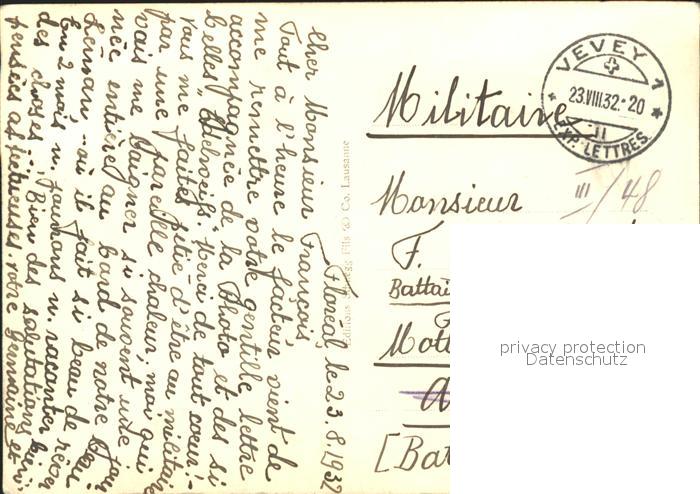 Floréal le 23.8.1932
Cher Monsieur François,
Tout à l'heure le facteur vient de
me remettre votre gentille lettre
accompagnée de la Photo et des si
belles "Edelweiss". Merci de tout coeur! -
vous me faites pitié d'être au militaire
par une pareille chaleur, moi qui
vais me baigner si souvent une
née entière au bord de notre beau
Léman, - où il fait si beau de rêver
En 2 mois n. pourrons n. raconter bien
des choses.. Bien des salutations
pensées affectueuses. votre Germaine
Editions Fils & Co. Lausanne
VEVEY 1
23.VIII.32.-20
EXP. LETTRES
Militaire
III/48
Monsieur
F.
Battai
Môt
A
[Bat
privacy protection
Datenschutz